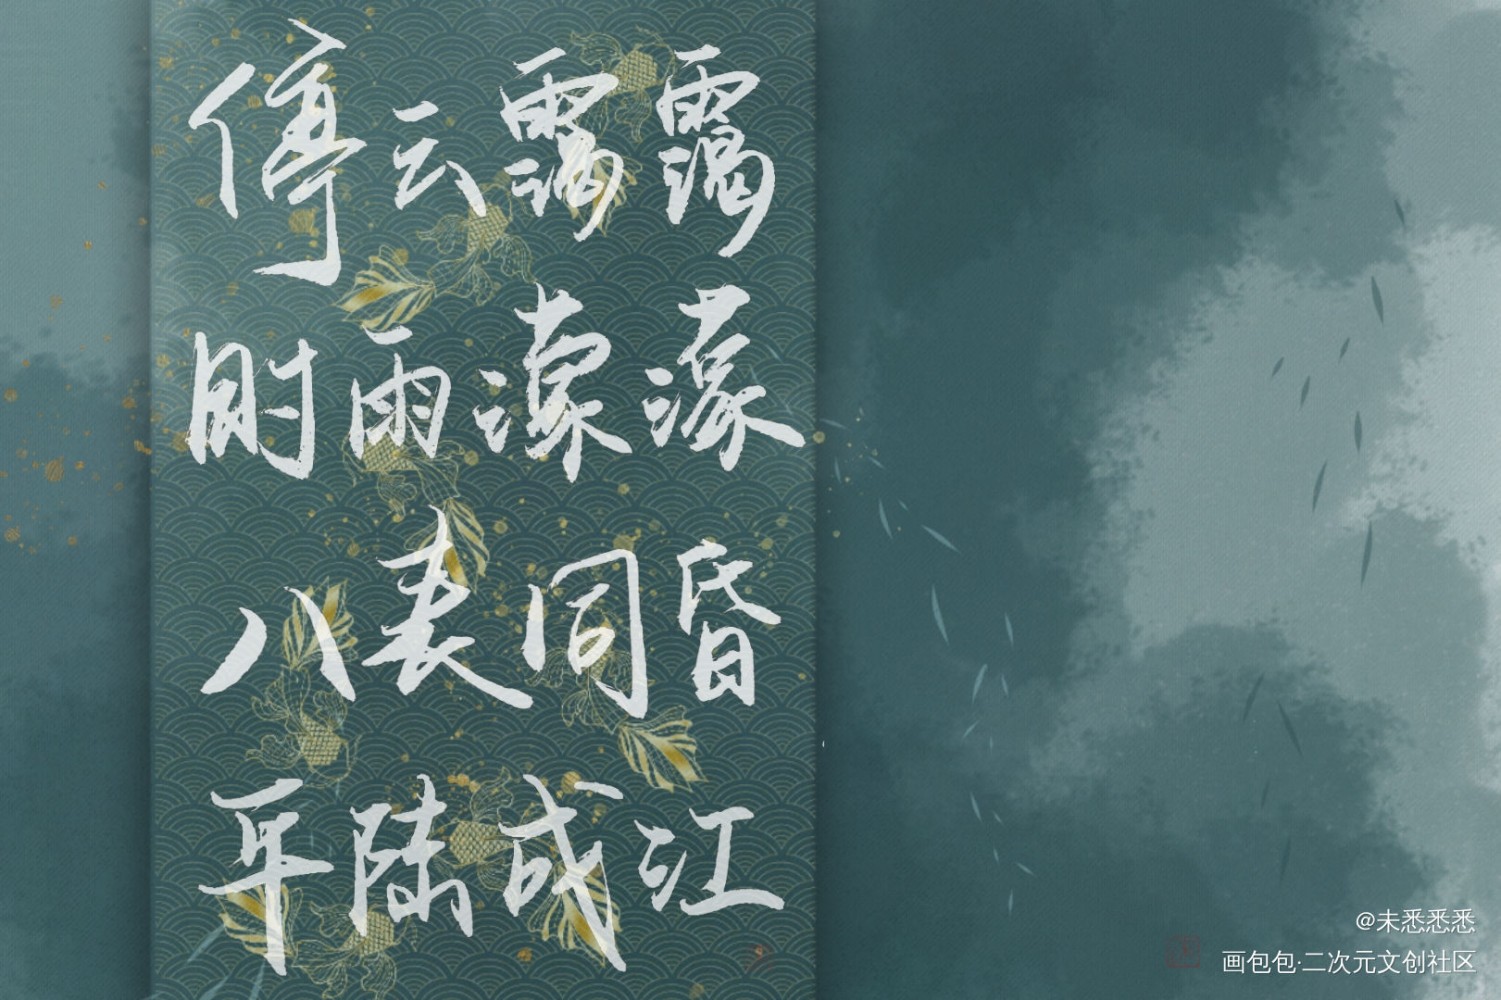 停云霭霭
时雨濛濛
八表同昏
平陆成江
@未悉悉悉
画包包·二次元文创社区